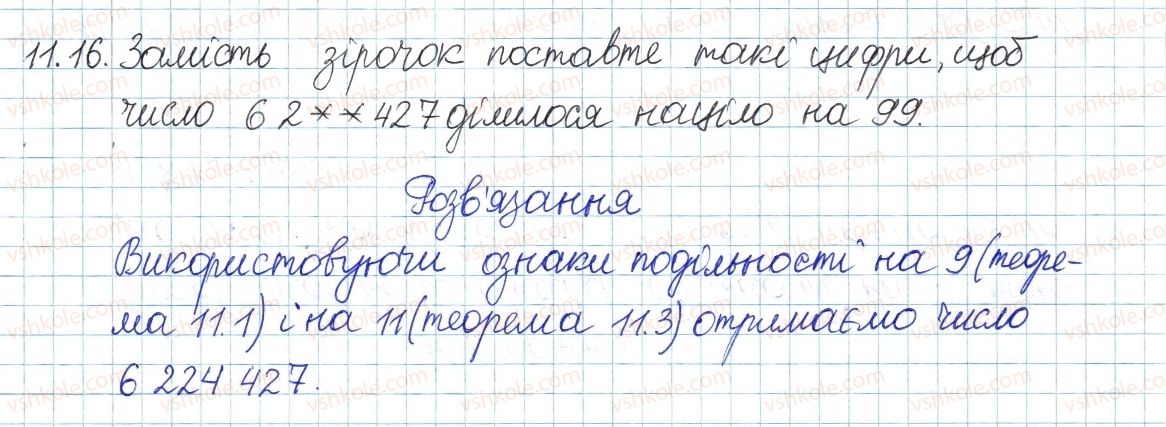 11.16. Замість зірочок поставте такі цифри, щоб
число 62**427 ділилося націло на 99.
Розв'язання
Використовуючи ознаки подільності на 9 (теоре-
ма 11.1) і на 11 (теорема 11.3) отримаємо число
6 224 427.
vshkole.com